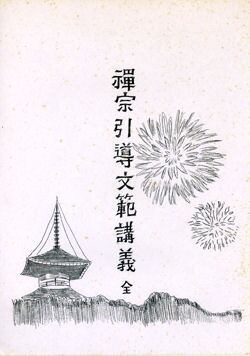 禪宗引導文範講義 全